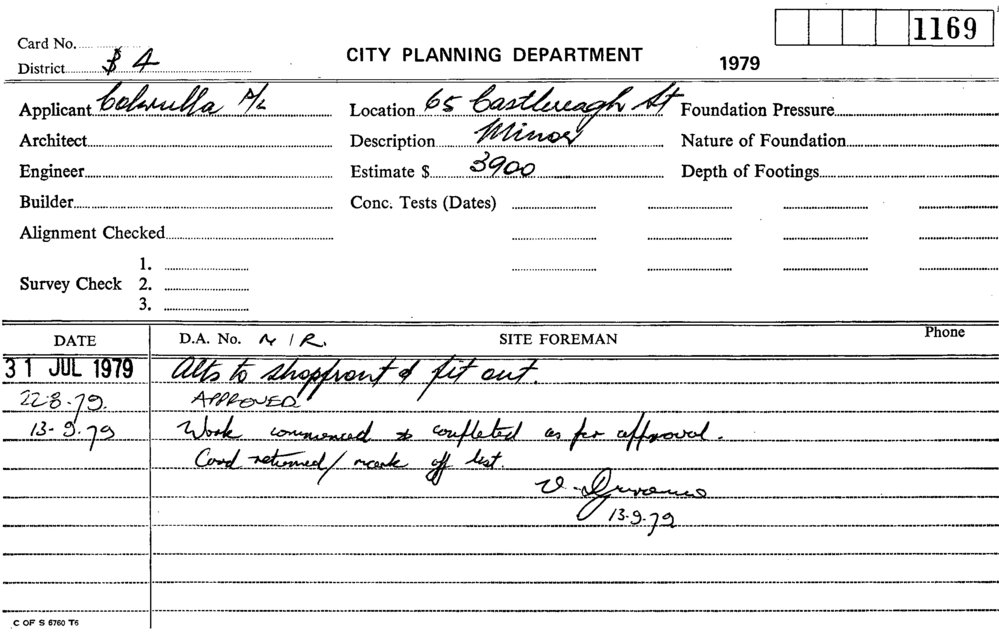 1169
Card No.
CITY PLANNING DEPARTMENT 1979
District 4
Applicant P/L Location 65 Castlereagh St Foundation Pressure
Architect Description Minor Nature of Foundation
Engineer Estimate $ 3900 Depth of Footings
Builder Conc. Tests (Dates)
Alignment Checked
1.
Survey Check 2.
3.
DATE D.A. No. N/R. SITE FOREMAN Phone
31 JUL 1979 Alts to shopfront & fit out.
22-8-79. APPROVED
13-9-79 Work commenced & completed as per approval.
Card returned/mark off list.
13-9-79
C OF S 6760 T6